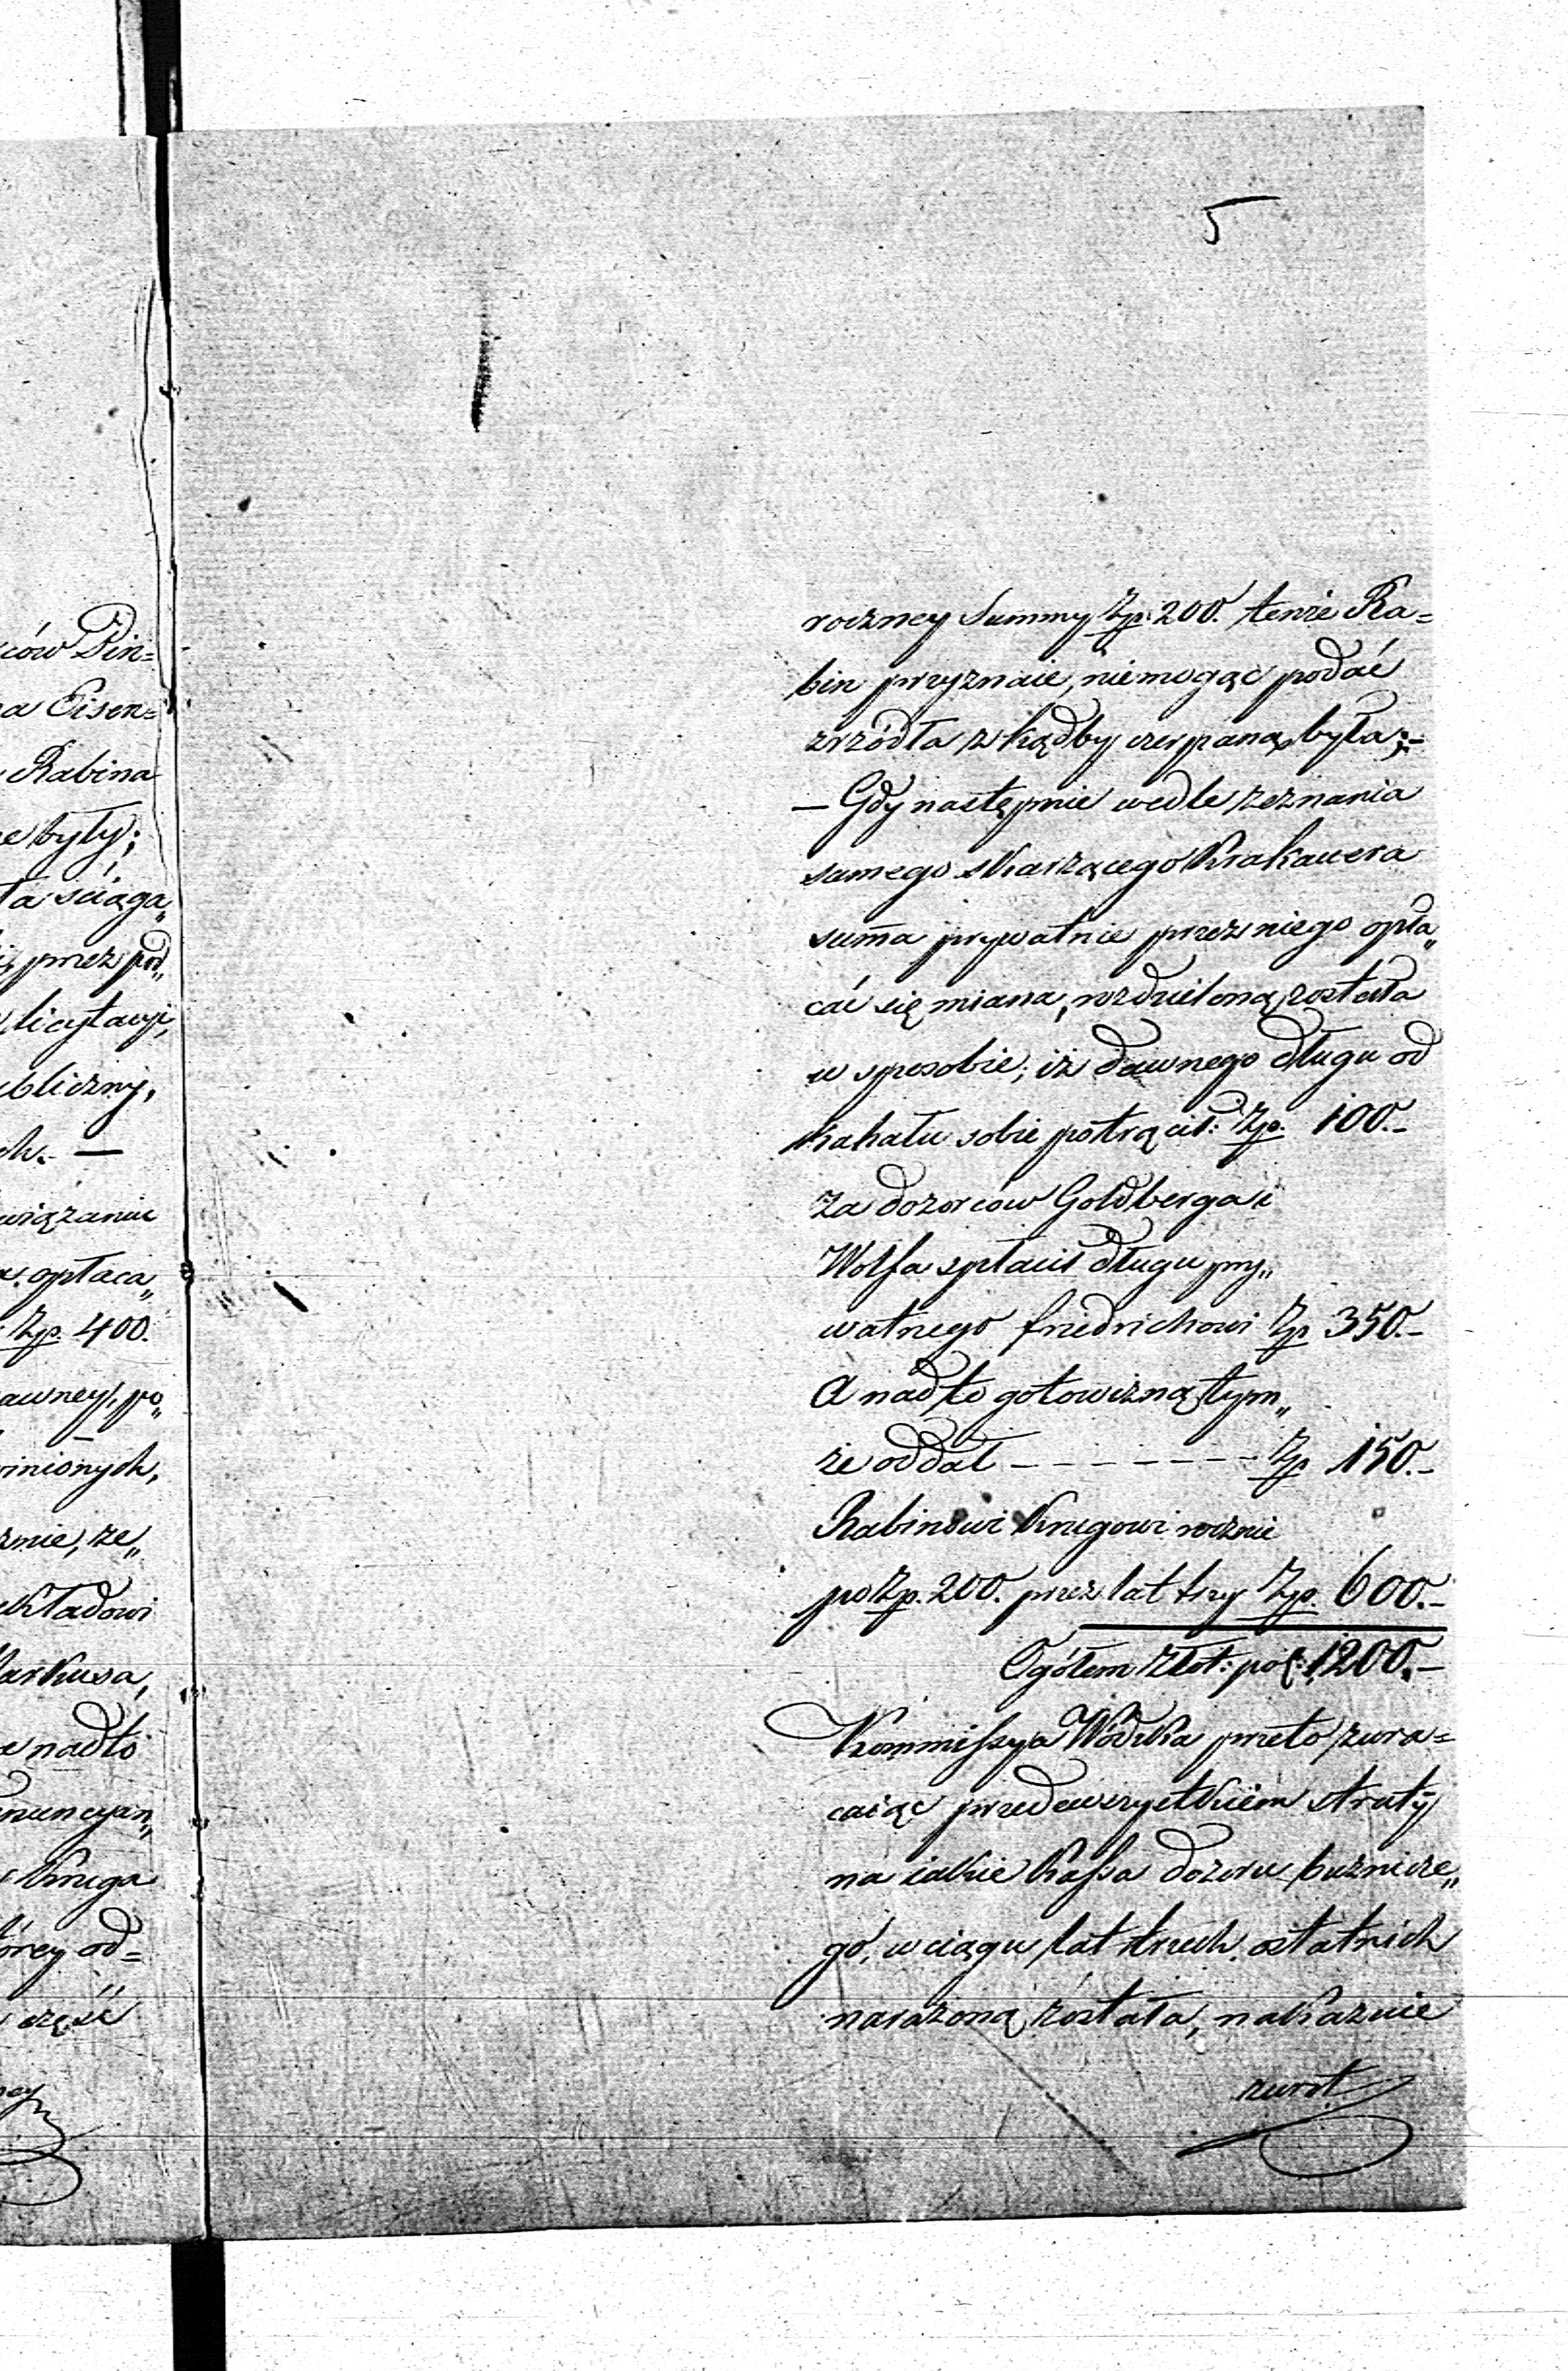 ców Pin=
na Eisen=
Rabina
e były;
ta ściąga„
przez pod„
licytacyi,
ubliczny,
ch. —
wiązaniu
opłaca„
Zp. 400.
awney, po„
winionych,
znie, ze„
kładowi
Markusa,
a nadto
nuncyan„
Kruga
tórey od=
część
5
roczney Summy Zp. 200. tenże Ra=
bin przyznaie, niemogąc podać
zrzódła z kądby czerpaną była;-
— Gdy następnie wedle zeznania
samego skarżącego Krakauera
suma prywatnie przez niego opła„
cać się miana, rozdzieloną została
w sposobie; iż dawnego długu od
Kahału sobie potrącił: Zp. 100.-
Za dozorcow Goldberga i
Wolfa spłacił długu pry„
watnego friedrichowi Zp 350.-
A nadto gotowizną tym„
że oddał - - - - - - - Zp 150.-
Rabinowi Krugowi rocznie
po Zp. 200. przez lat trzy Zp. 600.-
Ogółem Złot: pol: 1200.-
Kommissya Wódzka przeto zwra=
caiąc przedewszystkiem straty
na iakie Kassa dozoru bużnicze„
go, w ciągu lat trzech ostatnich
narażoną została, nakazuie
zwrot